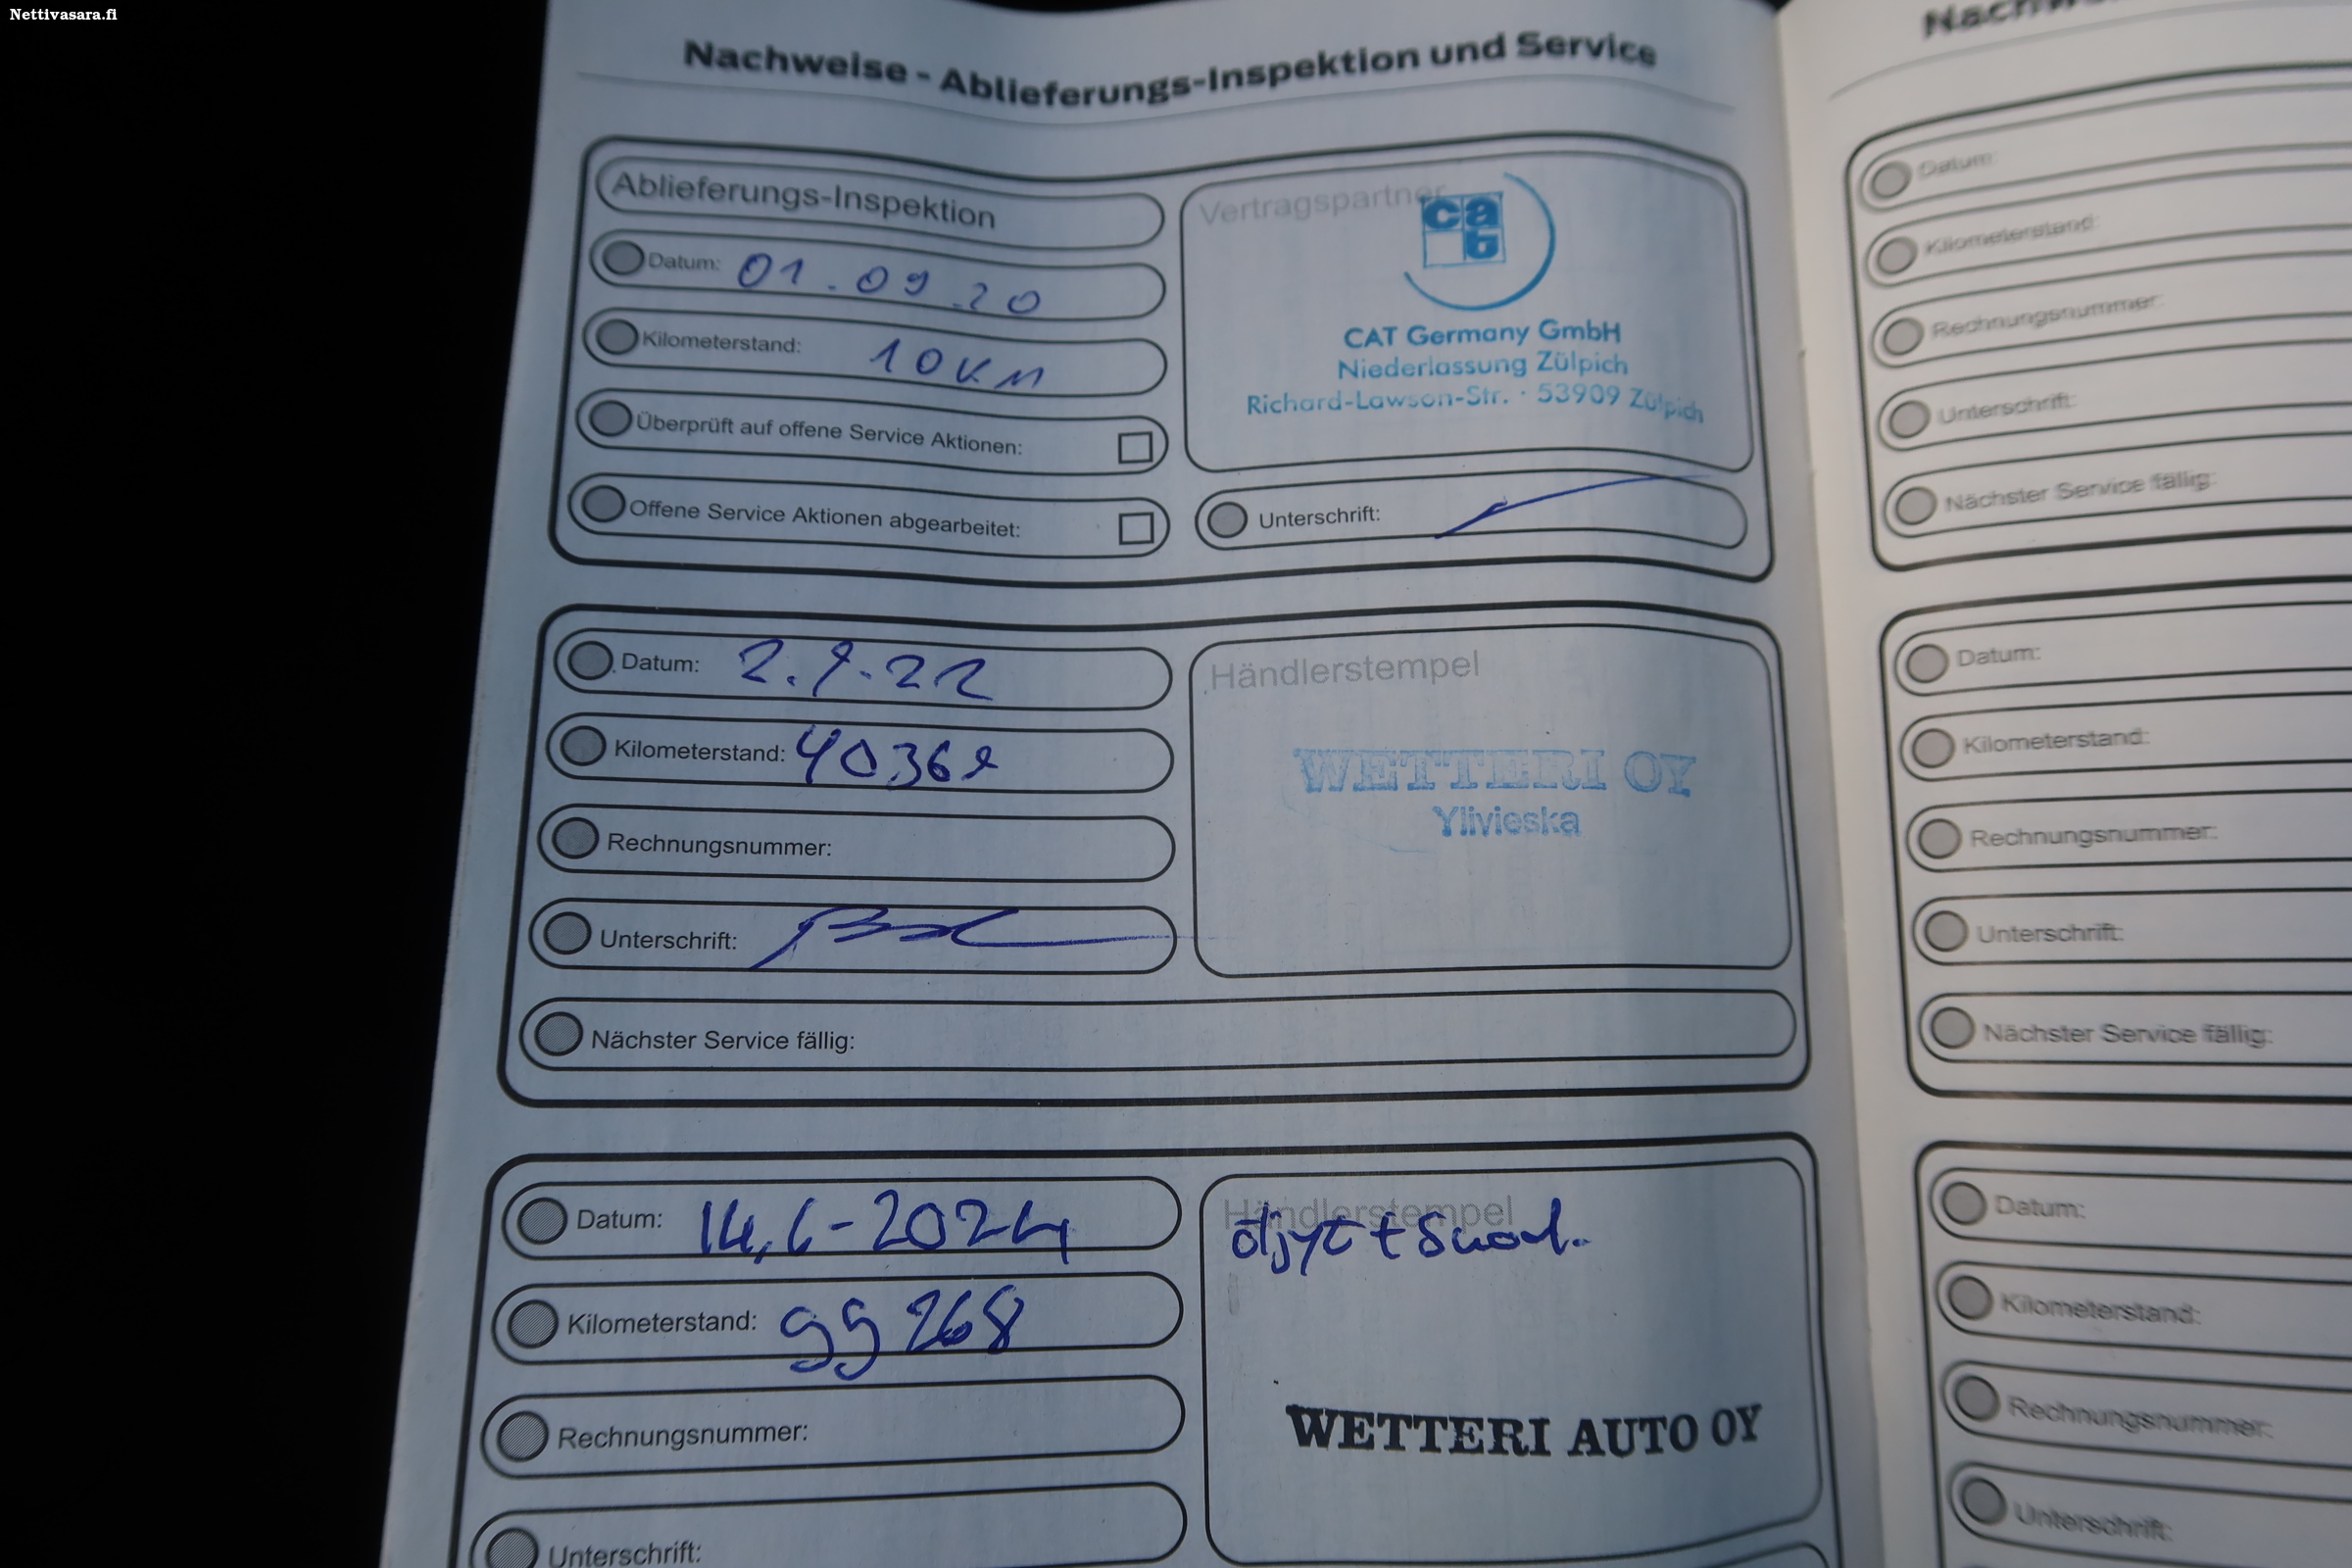 Nettivasara.fi
Nachweise - Ablieferungs-Inspektion und Service
Ablieferungs-Inspektion
Datum: 01.09.20
Kilometerstand: 10 KM
Überprüft auf offene Service Aktionen:
Offene Service Aktionen abgearbeitet:
Vertragspartner
cat
CAT Germany GmbH
Niederlassung Zülpich
Richard-Lawson-Str. · 53909 Zülpich
Unterschrift:
Datum: 2.9.22
Kilometerstand:
Rechnungsnummer:
Unterschrift:
Nächster Service fällig:
Händlerstempel
WETTERI OY
Ylivieska
Datum: 14.6-2024
Kilometerstand: 99268
Rechnungsnummer:
Unterschrift:
Händlerstempel
öljyt + Suod.
WETTERI AUTO OY
Datum:
Kilometerstand:
Rechnungsnummer:
Unterschrift:
Nächster Service fällig:
Datum:
Kilometerstand:
Rechnungsnummer:
Unterschrift:
Nächster Service fällig:
Datum:
Kilometerstand:
Rechnungsnummer:
Unterschrift: